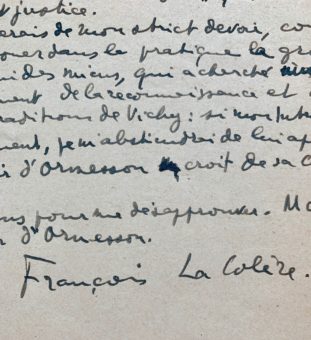 justice.
erais de mon strict devoir, co
oner dans la pratique la gra
i des miens, qui a cherché
ment de la reconnaissance et
raditions de Vichy : si mon
ment, je m'abstiendrai de lui ap
ir d'Ormesson croit de sa
us pour me désapprouver. Ma
r d'Ormesson.
François La Colère.